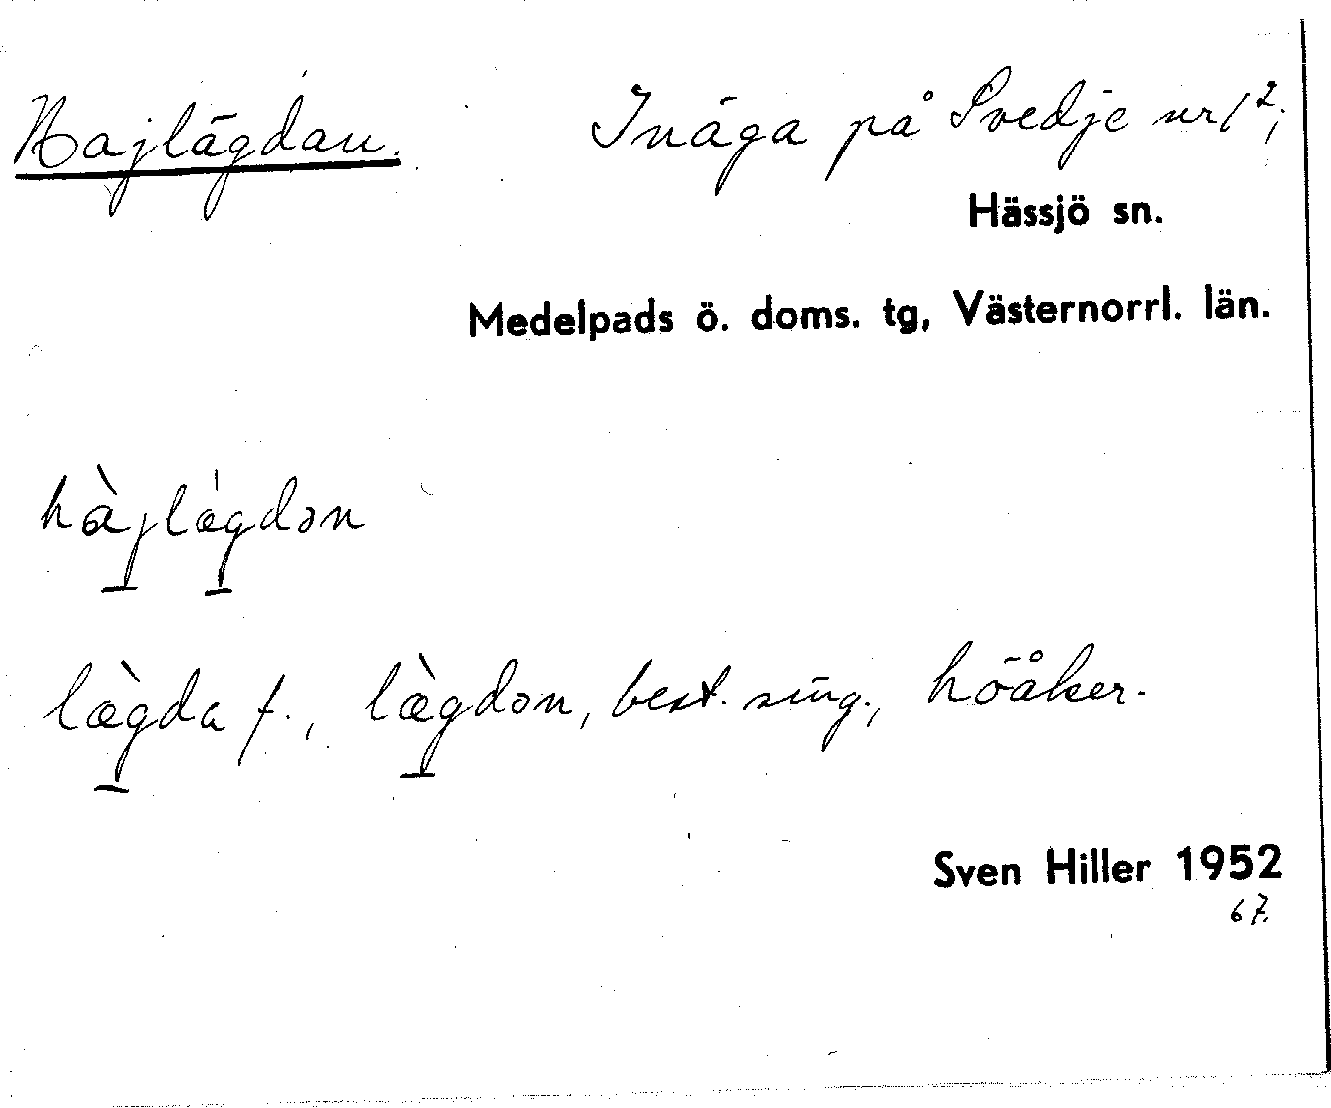 Hajlägdan. Inäga på Svedje nr 1²;
Hässjö sn.
Medelpads ö. doms. tg, Västernorrl. län.
hàjlǽgdən
læ̀gda f., læ̀gdən, best. sing., höåker.
Sven Hiller 1952
67.